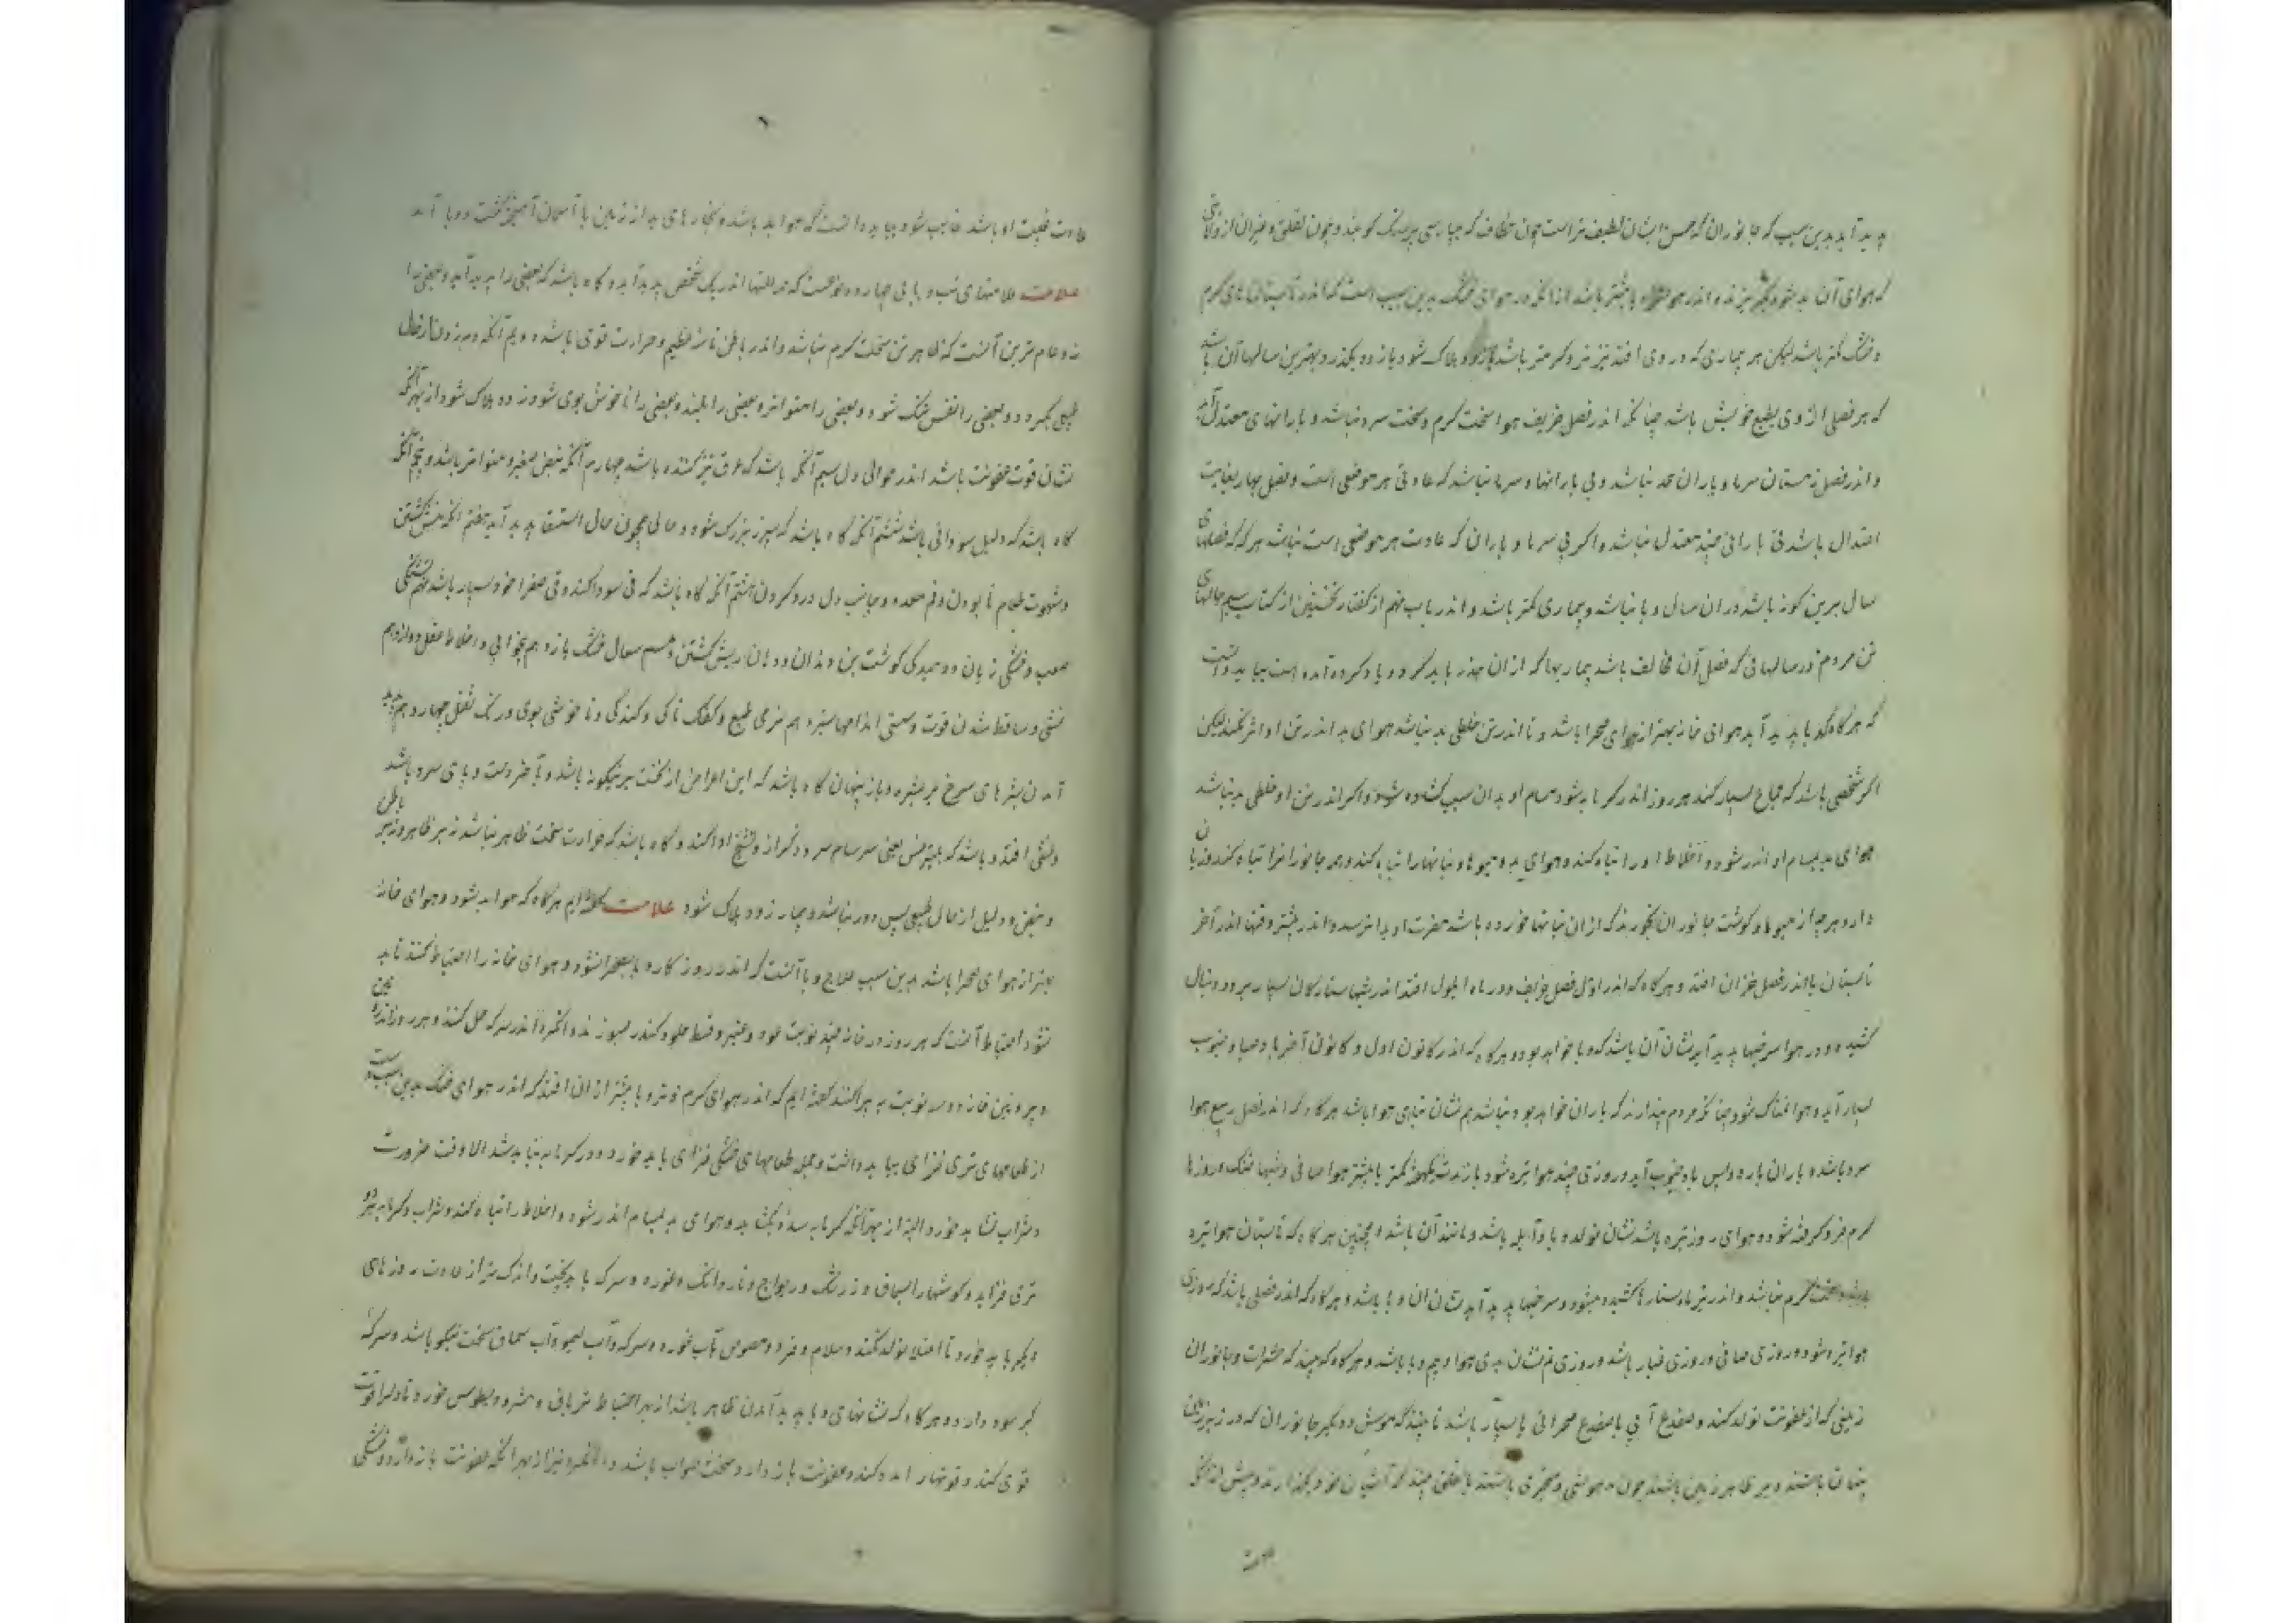 پدید آید بدین سبب که جانوران که حس ایشان لطیف تر است چون خطاف که بپارسی پرستک گویند و چون لقلق و غیر آن از ولایتی
که هوای آن بد شود بگریزند اندر هوا وبا بیشتر باشد از آنکه در هوای خشک بدین سبب است که اندر تابستان های گرم
و خشک کمتر باشد لیکن هر بیماری که در وی افتد تیزتر و گرمتر باشد زود هلاک شود یا زود بگذرد و بهترین سالها آن باشد
که هر فصلی از وی بطبع خویش باشد چنانکه اندر فصل خریف هوا سخت گرم و سخت سرد نباشد و بارانهای معتدل آید
و اندر فصل زمستان سرما و باران بحد نباشد و بی بارانها و سرما نباشد که عادتی هر موضعی است و فصل بهار بغایت
اعتدال باشد بی بارانی چند معتدل نباشد و اگر بی سرما و باران که عادت هر موضعی است نباشد هرگه که فصلهای
سال برین گونه باشد در آن سال وبا نباشد و بیماری کمتر باشد و اندر باب نهم از گفتار نخستین از کتاب سیم حالهای
تن مردم در سالهائی که فصل آن مخالف باشد بیماریها که از آن حذر باید کرد و یاد کرده آمده است بباید دانست
که هرگاه که وبا پدید آید هوای خانه بهتر از هوای صحرا باشد و تا اندر تن خلطی بد نباشد هوای بد اندر تن او اثر نکند لیکن
اگر شخصی باشد که جماع بسیار کند هر روز اندر گرمابه شود مسام او بدان سبب گشاده شود و اگر اندر تن او خلطی بد نباشد
هوای بد بمسام او اندر شود و اخلاط او را تباه کند و هوای بد میوها و نباتها را تباه کند و همه جانورانرا تباه کند و زیان
دارد هرچه از میوها و گوشت جانوران بخورند که از آن نباتها خورده باشد مضرت او بدانرسد و اندر بیشتر وقتها اندر آخر
تابستان یا اندر فصل خزان افتد و هرگاه که اندر اول فصل خریف و در ماه ایلول افتد اندر شبها ستارگان بسیار برود و دنبال
کشیده و در هوا سرخیها پدید آید نشان آن باشد که وبا خواهد بود و هرگاه که اندر کانون اول و کانون آخر باد صبا و جنوب
بسیار آید و هوا نمناک شود چنانکه مردم پندارند که باران خواهد بود و نباشد هم نشان تباهی هوا باشد هرگاه که اندر فصل ربیع هوا
سرد باشد و باران بارد و پس باد جنوب آید و روزی چند هوا تیره شود باز مدت یکهفته کمتر یا بیشتر هوا صافی و شبها خنک و روزها
گرم فرو گرفته شود و هوای روز تیره باشد نشان تولد وبا و آبله باشد و مانند آن باشد و همچنین هرگاه که تابستان هوا تیره
گرم نباشد و اندر تیر ماه ستارها کشیده میشود و سرخیها پدید آید نشان آن وبا باشد و هرگاه که اندر فصلی باشد که روزی
هوا تیره شود و روزی صافی و روزی غبار باشد و روزی نم نشان بدی هوا و بیم وبا باشد و هرگاه که بینند که حشرات و جانوران
زمینی که از عفونت تولد کند و ضفدع آبی یا ضفدع صحرائی بسیار باشد تا بینند که موش و دیگر جانوران که در زیر زمین
پنهان باشند و بر ظاهر زمین باشند چون مدهوشی و متحیری باشند یا لقلق بینند که آشیان خود بگذارند و پیش از آنکه
عادت غیبت او باشد غایب شود بباید دانست که هوا بد باشد و بخارهای بد از زمین با آسمان آمیخته گشت و وبا آمد
علامت علامتهای تب وبائی چهارده نوعست که همه علتها اندر یک شخص پدید آید و گاه باشد که بعضی را پدید آید و بعضی را
نه و عام ترین آنست که ظاهر تن سخت گرم نباشد و اندر باطن تاسه عظیم و حرارت قوی باشد دویم آنکه دم زدن از حال
طبیعی بگردد و بعضی را نفس تنگ شود و بعضی را متواتر و بعضی را بلند و بعضی را ناخوش بوی شود زود هلاک شود از بهر آنکه
نشان قوت عفونت باشد اندر حوالی دل سیم آنکه باشد که عرق تیز گنده باشد چهارم آنکه نبض صغیر و متواتر باشد و پنجم آنکه
گاه باشد که دلیل سودائی باشد ششم آنکه گاه باشد که سپرز بزرگ شود و حالی همچون حال استسقا پدید آید هفتم آنکه منش گشتن
و شهوت طعام نا بودن و فم معده و جانب دل درد کردن هشتم آنکه گاه باشد که قی سودا کند و قی صفرا خود بسیار باشد نهم تشنگی
صعب و خشکی زبان و دمیدگی گوشت بن دندان و دهان ریش گشتن دهم سعال خشک یازدهم بیخوابی و اختلاط عقل دوازدهم
غشی و ساقط شدن قوت و سستی اندامها سیزدهم نرمی طبع و کفک ناکی و گندگی و ناخوشی بوی و رنگ ثفل چهاردهم پدید
آمدن بثرهای سرخ بر بشره و باز پنهان گاه باشد که این اعراض از نخست برینگونه باشد و بآخر دست و پای سرد باشد
و غشی افتد و باشد که بلیثرغس یعنی سرسام سرد و کزاز و تشنج ادا کند و گاه باشد که حرارت سخت ظاهر نباشد نه بر ظاهر و نه بر باطن
و نبض و دلیل از حال طبیعی بس دور نباشد و بیمار زود هلاک شود علامت گفته ایم هرگاه که هوا بد شود و هوای خانه
بهتر از هوای صحرا باشد بدین سبب علاج وبا آنست که اندر روزگار وبا بصحرا نشود و هوای خانه را احتیاط کنند تا بد
نشود احتیاط آنست که هر روز در خانه چند نوبت عود و عنبر و قسط حلو و کندر بسوزند و انگزد اندر سرکه حل کنند و هر روز اندرون
و بیرون خانه دوسه نوبت بپراکنند گفته ایم که اندر هوای گرم و تر وبا بیشتر از آن افتد که اندر هوای خشک بدین سبب دست
از طعامهای تری فزای بباید داشت و میل طعامهای خشکی فزای باید خورد و در گرمابه نباید شد الا وقت ضرورت
و شراب نشاید خورد البته از بهر آنکه گرمابه سده بگشاید و هوای بد بمسام اندر شود و اخلاط را تباه کند و شراب و گرمابه هر دو
تری فزاید و گوشتها را بسماق و زرشک و ریواج و ناردانک و غوره و سرکه باید پخت و اندک تر از عادت روزهای
دیگر باید خورد تا امتلا تولد نکند و سلام و فرد و مصوص بآب غوره و سرکه و آب لیمو و آب سماق سخت نیکو باشد و سرکه
کبر سود دارد و هرگاه که نشانهای وبا پدید آمدن ظاهر باشد از بهر احتیاط تریاق و مثرودیطوس خورد تا دل را قوت
قوی کند و قوتها را مدد کند و عفونت باز دارد و سخت صواب باشد و انگزد نیز از بهر آنکه عفونت باز دارد و خشکی